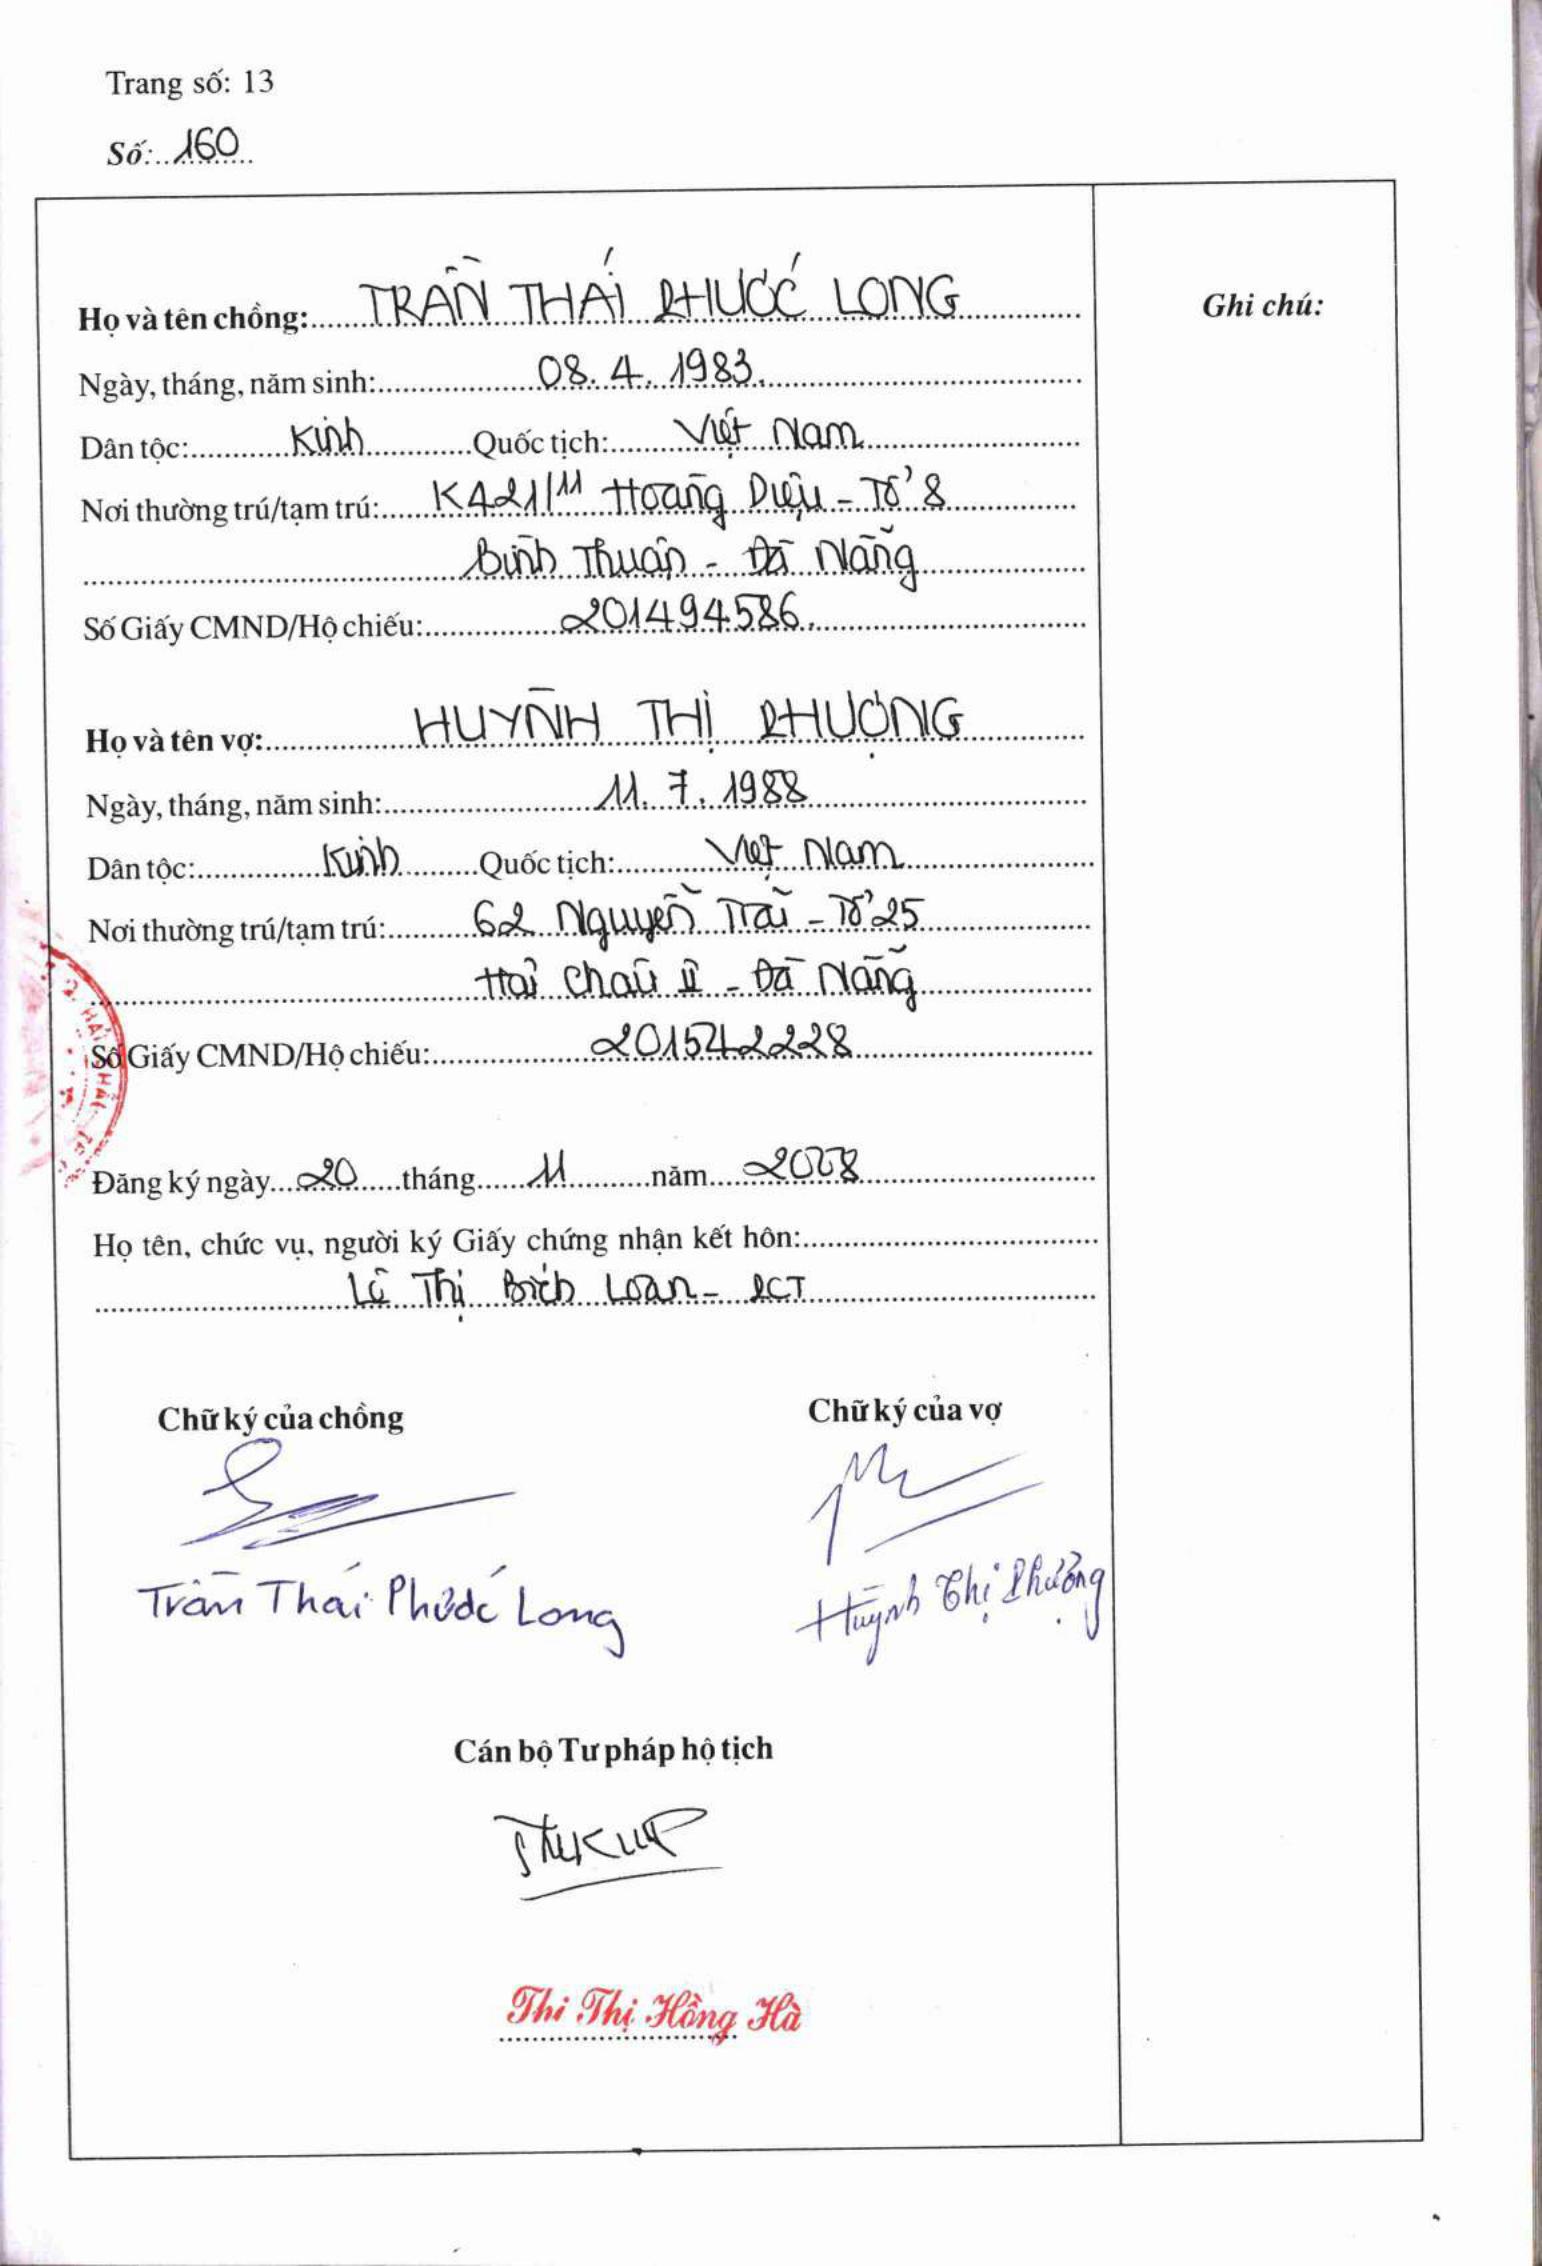 Trang số: 13
Số: 160
Họ và tên chồng: TRẦN THÁI PHƯỚC LONG
Ghi chú:
Ngày, tháng, năm sinh: 08.4.1983.
Dân tộc: Kinh Quốc tịch: Việt Nam
Nơi thường trú/tạm trú: K421/11 Hoàng Diệu - Tổ 8
Bình Thuận - Đà Nẵng
Số Giấy CMND/Hộ chiếu: 201494586.
Họ và tên vợ: HUỲNH THỊ PHƯỢNG
Ngày, tháng, năm sinh: 11.7.1988
Dân tộc: Kinh Quốc tịch: Việt Nam
Nơi thường trú/tạm trú: 62 Nguyễn Trãi - Tổ 25
Hải Châu II - Đà Nẵng
Số Giấy CMND/Hộ chiếu: 201542228
Đăng ký ngày 20 tháng 11 năm 2008
Họ tên, chức vụ, người ký Giấy chứng nhận kết hôn:
Lê Thị Bích Loan - PCT
Chữ ký của chồng Chữ ký của vợ
Trần Thái Phước Long Huỳnh Thị Phượng
Cán bộ Tư pháp hộ tịch
Thi Thị Hồng Hà